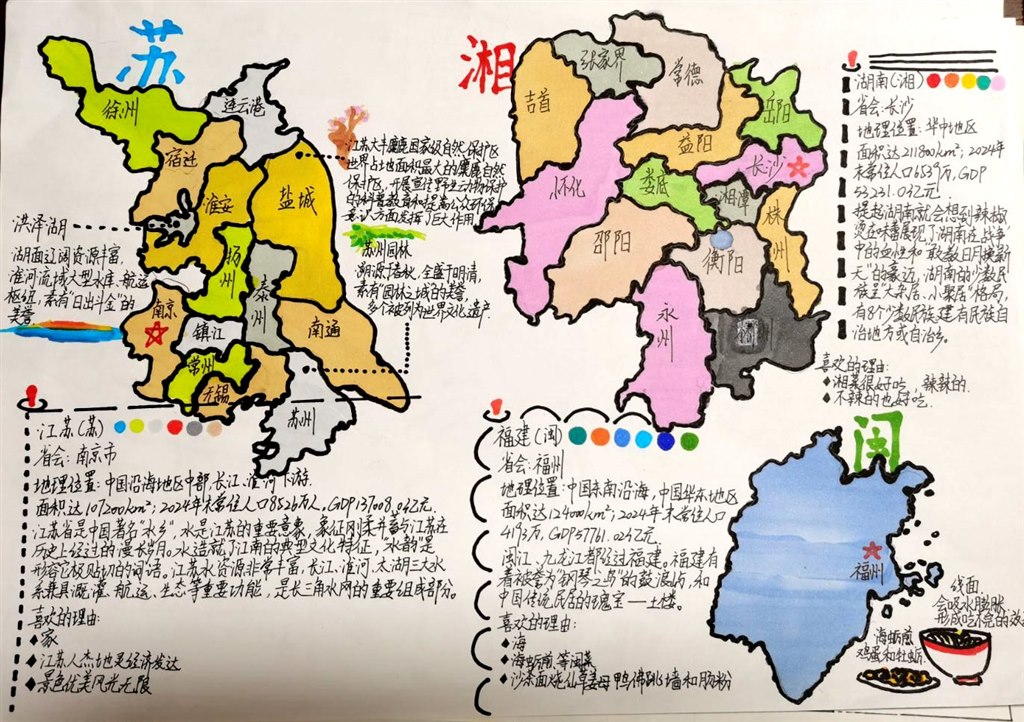 苏
徐州
连云港
宿迁
淮安
盐城
扬州
泰州
南京
镇江
常州
无锡
南通
苏州
洪泽湖
湖面辽阔资源丰富,
淮河流域大型水库、航运
枢纽,素有"日出斗金"的
美誉
江苏大丰麋鹿国家级自然保护区
世界占地面积最大的麋鹿自然
保护区,开展宣传野生动物保护
的科普教育和提高公众环保
意识方面发挥了巨大作用.
苏州园林
溯源于春秋,全盛于明清,
素有"园林之城"的美誉
多个被列为世界文化遗产
江苏(苏)
省会:南京市
地理位置:中国沿海地区中部,长江、淮河下游.
面积达107200km²;2024年末常住人口8526万人,GDP137008.0亿元.
江苏省是中国著名"水乡",水是江苏的重要意象,象征刚柔并蓄与江苏在
历史上经过的漫长岁月。水造就了江南的典型文化特征,水韵是
形容它极贴切的词语。江苏水资源非常丰富,长江、淮河、太湖三大水
系兼具灌溉、航运、生态等重要功能,是长三角水网的重要组成部分。
喜欢的理由:
◆家
◆江苏人杰地灵经济发达
◆景色优美风光无限
湘
张家界
常德
吉首
岳阳
益阳
长沙
怀化
娄底
湘潭
株州
邵阳
衡阳
永州
湖南(湘)
省会:长沙
地理位置:华中地区
面积达211800km²;2024年
末常住人口6539万,GDP
53231.0亿元.
提起湖南就会想到辣椒
烫在味蕾展现了湖南在战争
中的血性和"敢教日月换新
天"的豪迈,湖南的少数民
族呈"大杂居、小聚居"格局,
有8个少数民族建有民族自
治地方或自治乡。
喜欢的理由:
◆湘菜很好吃,辣辣的.
◆不辣的也好吃.
福建(闽)
省会:福州
地理位置:中国东南沿海,中国华东地区
面积达124000km²;2024年末常住人口
4193万,GDP57761.02亿元.
闽江、九龙江都经过福建。福建有
着被誉为"钢琴之岛"的鼓浪屿,和
中国传统民居的瑰宝——土楼。
喜欢的理由:
◆海
◆海蛎煎等闽菜
◆沙茶面烧仙草姜母鸭佛跳墙和肠粉
闽
福州
线面
会吸水膨胀
形成吃不完的效
海蛎煎
鸡蛋和牡蛎